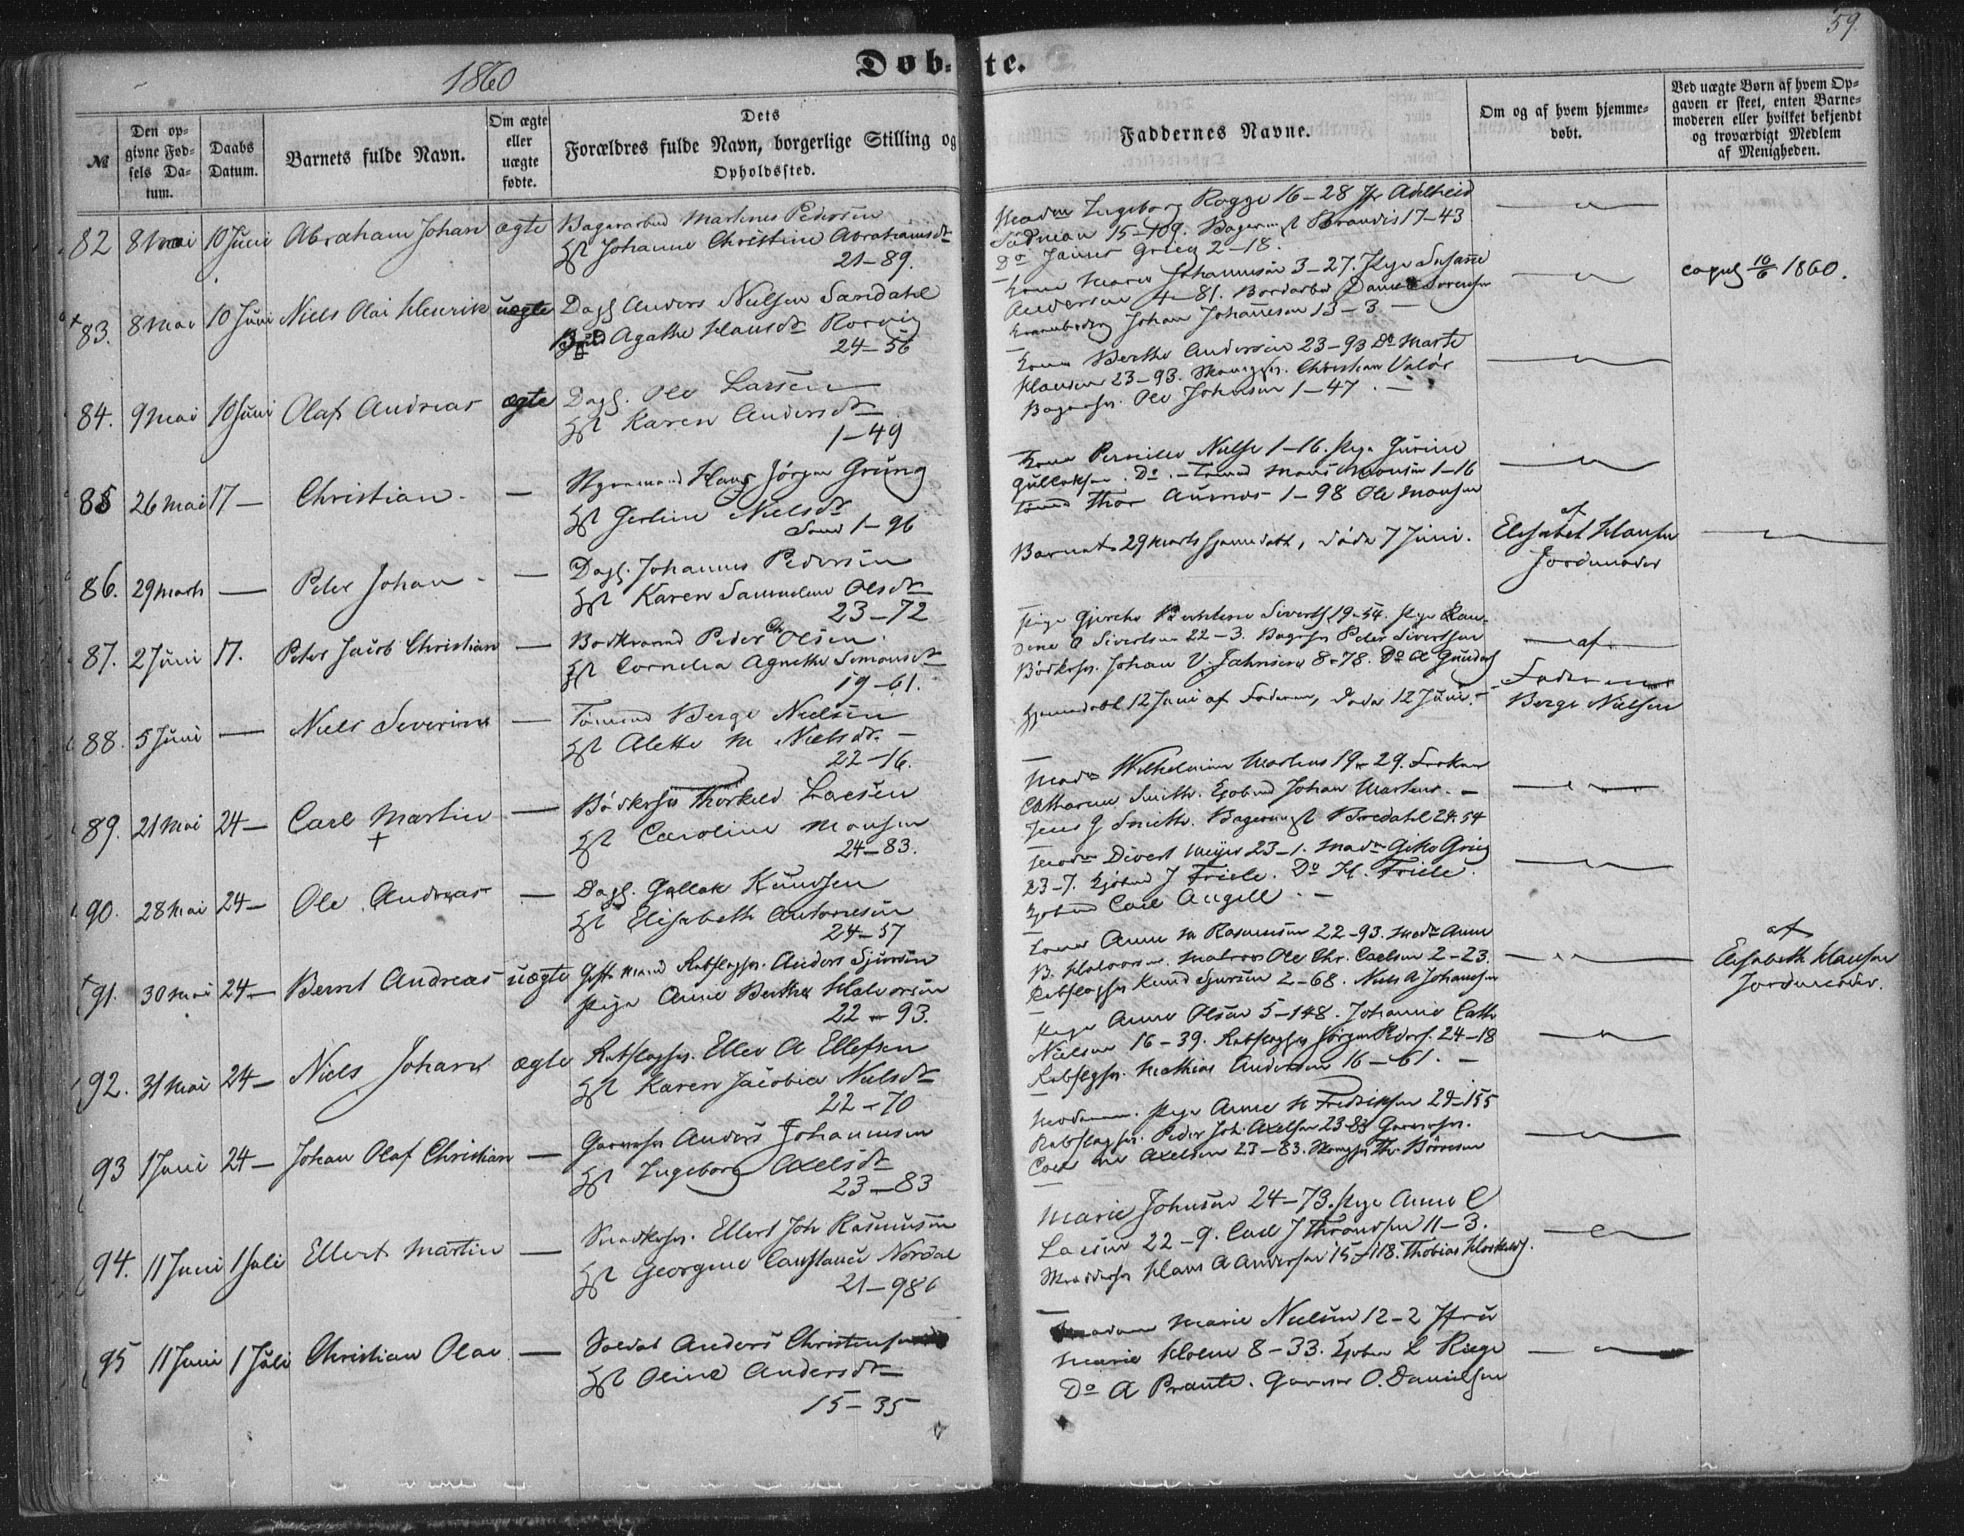 59.
1860
Døb-te.
№
Den op-
givne Fød-
sels Da-
tum.
Daabs
Datum.
Barnets fulde Navn.
Om ægte
eller
uægte
fødte.
Dets
Forældres fulde Navn, borgerlige Stilling og
Opholdssted.
Faddernes Navne.
Om og af hvem hjemme-
døbt.
Ved uægte Børn af hvem Op-
gaven er skeet, enten Barne-
moderen eller hvilket bekjendt
og troværdigt Medlem
af Menigheden.
82 8 Mai 10 Juni Abraham Johan ægte Bagerarbed Martinus Pedersen
Hst Johanne Christine Abrahamsdt
21-89.
Madm Ingeborg Rogge 16-28 Jfr Adelheid
15-109. Bagermst Brandis 17-43
Do James Grieg 2-18.
83. 8 Mai 10 Juni Niels Olai Henrik uægte Dagl Anders Nielsen Sandahl
Agathe Hansdt
24-56
Kone Maren Johannesen 3-27. Pige Susanne
Andersen 4-81. Bordarbd Daniel Sørensen
Johan Johannesen 13-3 -
copul 10/6 1860.
84. 9 Mai 10 Juni Olaf Andreas ægte Dagl. Ole Larsen
Hst Karen Andersdt
1-49
Kone Berthe Andersen 23-93 Do Marte
Hansen 23-93. Christian Valør
Ole Johnsen 1-47. -
85 26 Mai 17 - Christian - - Styrmand Hans Jørgen Grung
Hst Gertine Nielsdt
1-96
Kone Pernille Niels 1-16. Pige Gurine
Gulloksen. Do. - Tømmd Mons Monsen 1-16
Tømmd Thor 1-98 Ole Monsen
86. 29 Marts - Peter Johan - - Dagl. Johannes Pedersen
Hst Karen Samueline Olsdt
23-72
Barnet 29 Marts hjemmedøbt, døde 7 Juni.
af
Elisabet Hansen
Jordmoder
87. 2 Juni 17. Peter Jacob Christian - Bødkersvd Peder Chr Olsen.
Hst Cornelia Agnethe Simonsdt
19-61.
Pige Gjerche Siverts 19-54. Pige
Sivertsen 22-3. Peter Sivertsen
Bødkersv. Johan V. Jahnsen 8-78. Do
88. 5 Juni - Niels Severin - Tømmd Berge Nielsen
Hst Alette M Nielsdt. -
22-16.
Hjemmedøbt 12 Juni af Faderen, døde 12 Juni. -
af
Faderen
Berge Nielsen
89. 21 Mai 24 - Carl Martin - Bødkersv Thorkild Larsen
+
Hst Caroline Monsen
24-83.
Madm Wilhelmine Martens 19-29. Frøken
Catharine Smith. Kjøbmd Johan Martens. -
Jens G Smith. Bagermst Bredahl 24-54
90. 28 Mai 24 - Ole Andreas - Dagl. Gullak Knudsen
Hst Elisabeth Antonesen
24-57
Madm Divert Meyer 23-1. Madm Grieg
23-7. Kjøbmd J Friele. Do H. Friele.
Kjøbmd Carl Angell. -
91. 30 Mai 24 - Bernt Andreas uægte Gift Mand Rebslagsv. Anders Sjursen
Pige Anne Berthe Halvorsen
22-93.
Kone Anne M Rasmussen 22-93. Madm Anne
B. Halvorsen. Matros Ole Chr. Carlsen 2-23.
Rebslagsv Knud Sjursen 2-68. Niels A Johannsen
af
Elisabeth Hansen
Jordmoder.
92. 31 Mai 24 - Niels Johan ægte Rebslagsv. Ellev A Ellefsen
Hst Karen Jacobia Nielsdt
22-70
Pige Anne Olsen 5-148. Johanne Cath
Nielsen 16-39. Rebslagsv Jørgen 24-18
Rebslgsv. Mathias Andersen 16-61. -
93 1 Juni 24 - Johan Olaf Christian - Garversv Anders Johannesen
Hst Ingeborg Axelsdt
23-83
Moderen. Pige Anne M Fredriksen 24-155
Rebslagsv. Peder Joh. Axelsen 23-83 Garversv.
Carl Axelsen 23-83. Th. Børresen
94. 11 Juni 1 Juli Ellert Martin - Snedkersv. Ellert Joh Rasmussen
Hst Georgine Constance Nordal
21-98b
Marie Johnsen 24-73. Pige Anne C
Larsen 22-9. Carl J Throndsen 11-3.
Skræddersv Hans A Andersen 15-118. Thobias
95 11 Juni 1 Juli Christian Olai - Soldat Anders Christensen
Hst Oline Andersdt
15-35
Madam Marie Nielsen 12-2 Jfru
Marie Holm 8-33. Kjøbm L Riege
Do A Prante. Garver O. Danielsen